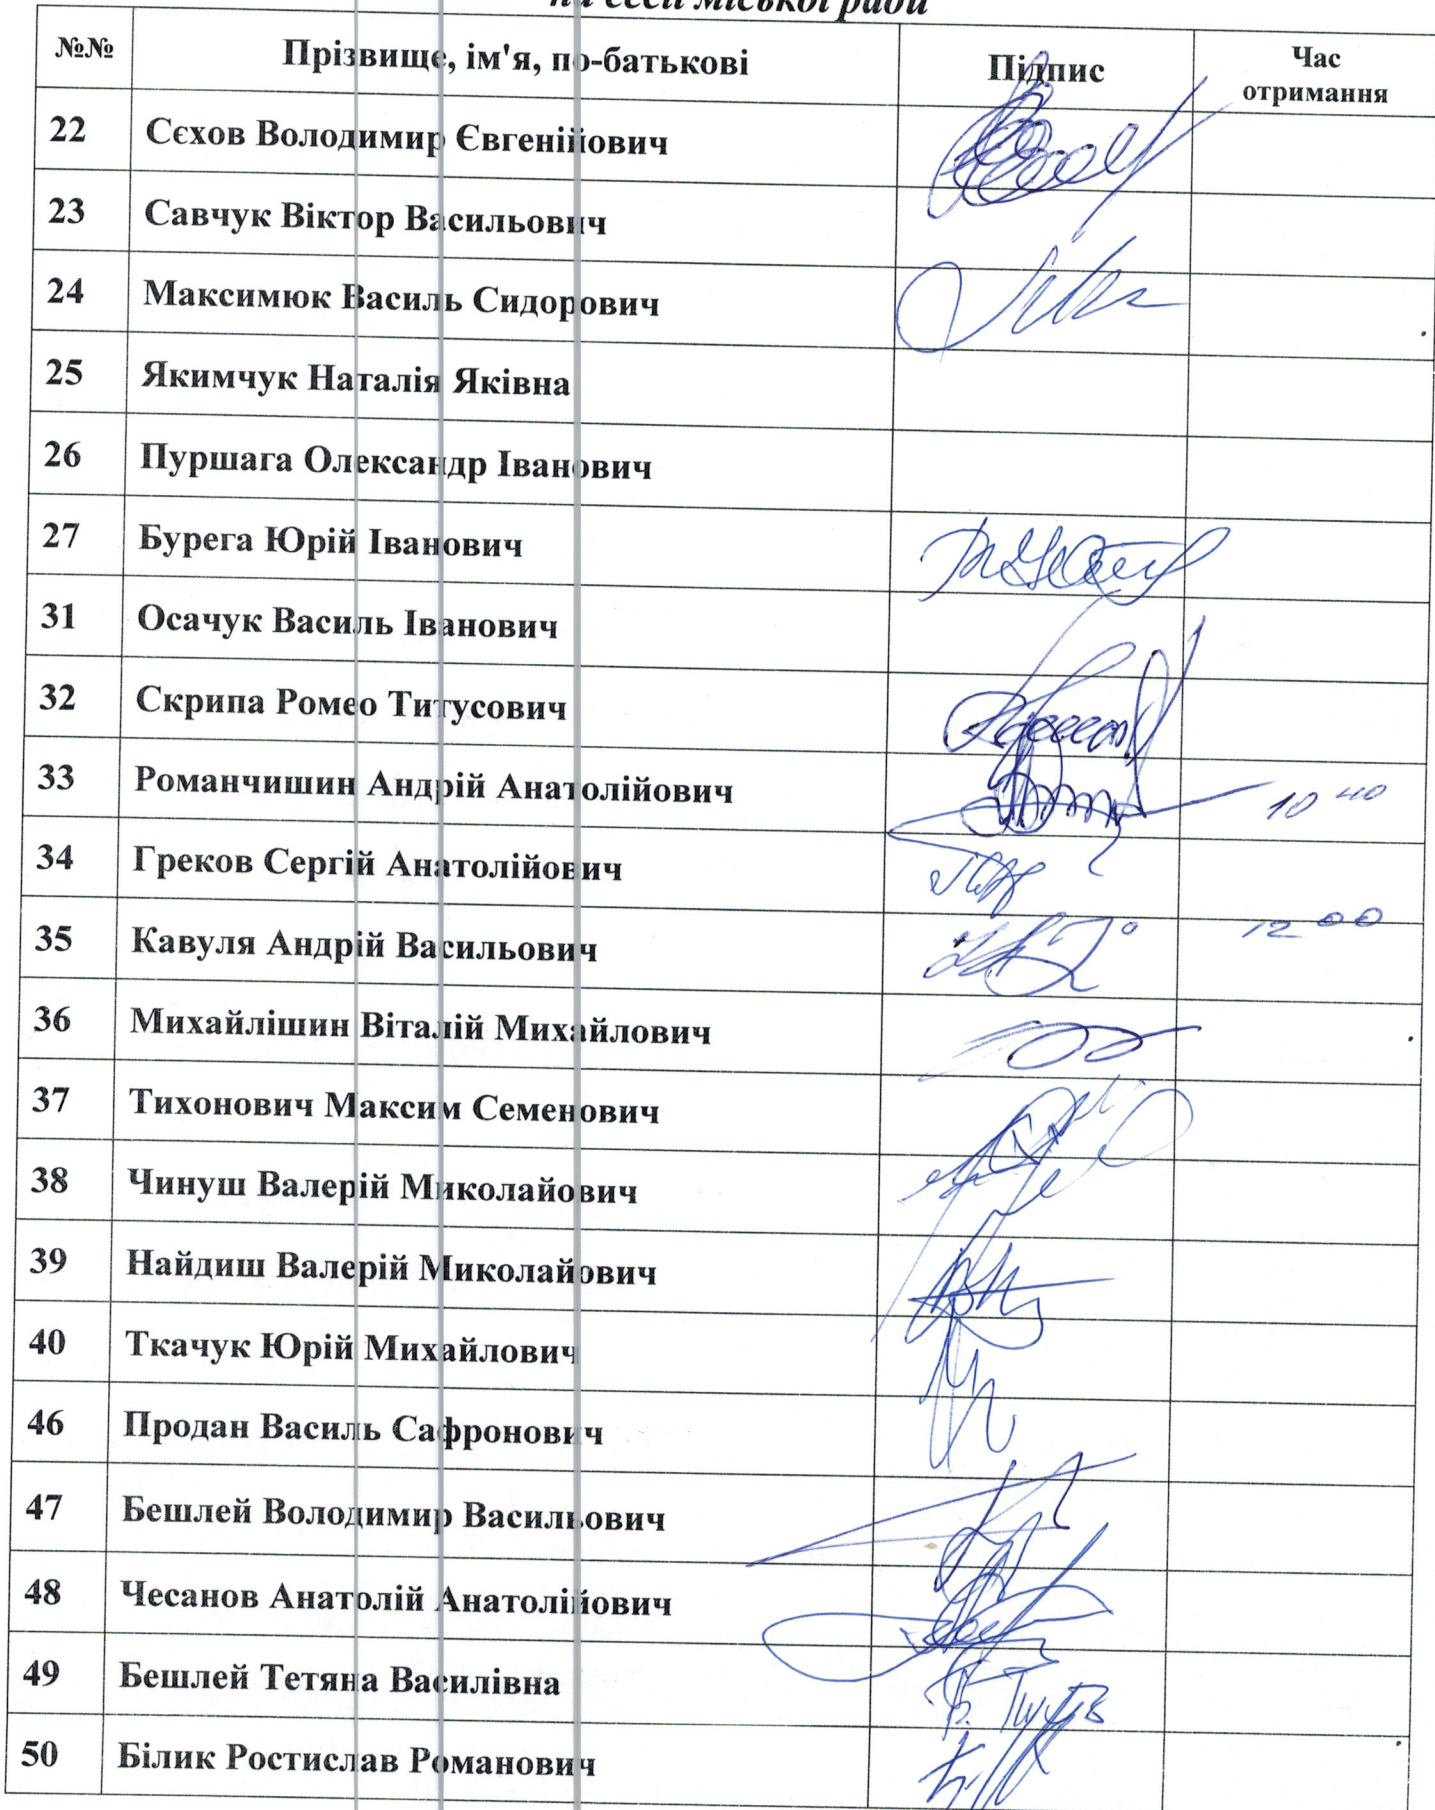 на сесії міської ради
№№ Прізвище, ім'я, по-батькові Підпис Час
отримання
22 Сєхов Володимир Євгенійович
23 Савчук Віктор Васильович
24 Максимюк Василь Сидорович
25 Якимчук Наталія Яківна
26 Пуршага Олександр Іванович
27 Бурега Юрій Іванович
31 Осачук Василь Іванович
32 Скрипа Ромео Титусович
33 Романчишин Андрій Анатолійович 10 40
34 Греков Сергій Анатолійович
35 Кавуля Андрій Васильович 12 00
36 Михайлішин Віталій Михайлович
37 Тихонович Максим Семенович
38 Чинуш Валерій Миколайович
39 Найдиш Валерій Миколайович
40 Ткачук Юрій Михайлович
46 Продан Василь Сафронович
47 Бешлей Володимир Васильович
48 Чесанов Анатолій Анатолійович
49 Бешлей Тетяна Василівна
50 Білик Ростислав Романович